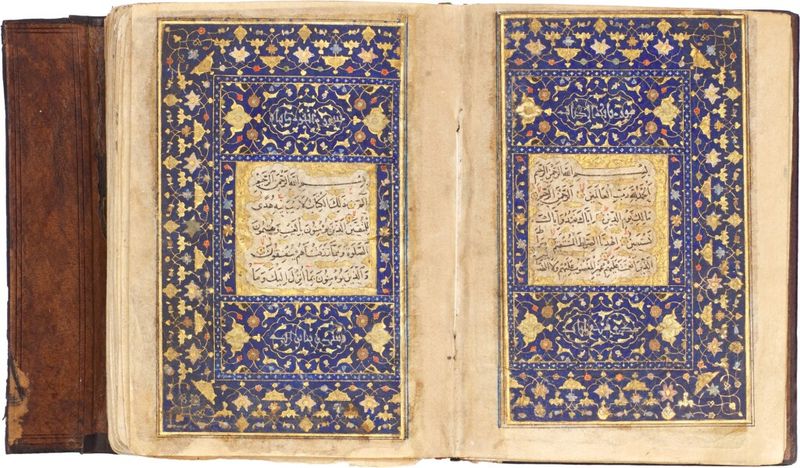 سورة فاتحة الكتاب
بسم الله الرحمن الرحيم
الحمد لله رب العالمين الرحمن الرحيم
مالك يوم الدين اياك نعبد واياك
نستعين اهدنا الصراط المستقيم صراط
الذين انعمت عليهم غير المغضوب عليهم ولا الضالين
بسم الله الرحمن الرحيم
الم ذلك الكتاب لا ريب فيه هدى
للمتقين الذين يؤمنون بالغيب ويقيمون
الصلوة ومما رزقناهم ينفقون
والذين يؤمنون بما انزل اليك وما